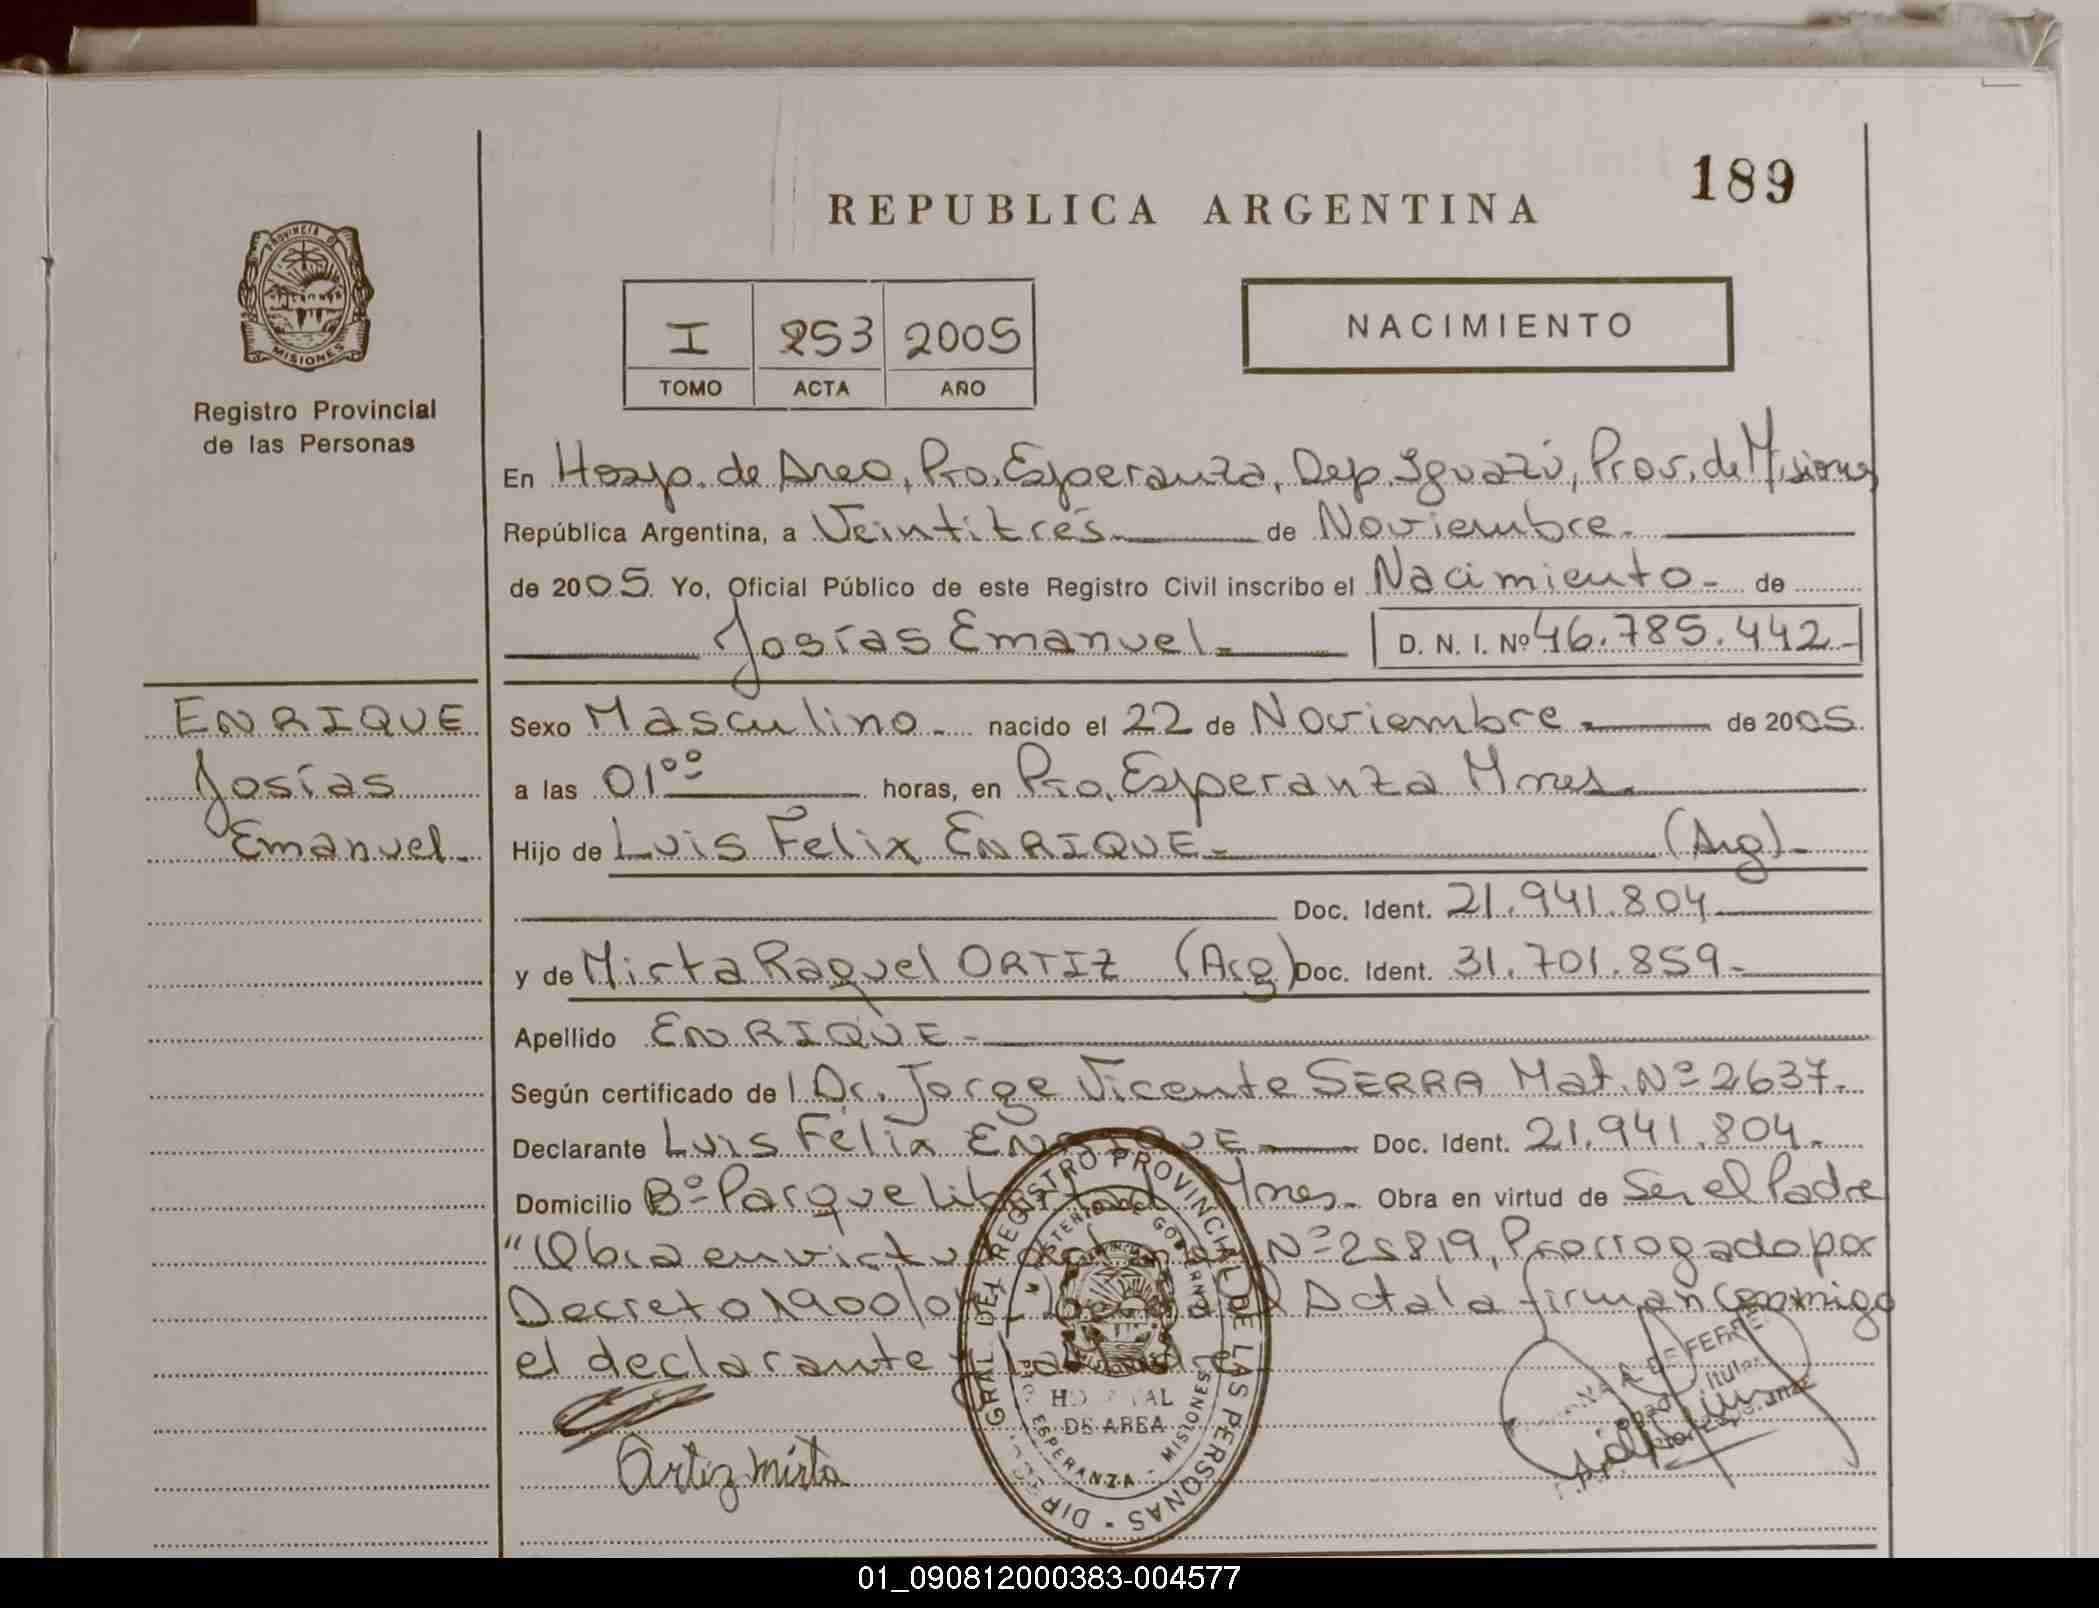 189
REPUBLICA ARGENTINA
PROVINCIA DE
MISIONES
Registro Provincial
de las Personas
I 253 2005
TOMO ACTA AÑO
NACIMIENTO
En Hosp. de Area, Pto. Esperanza, Dep. Iguazú, Prov. de Misiones
República Argentina, a Veintitrés de Noviembre.
de 2005 Yo, Oficial Público de este Registro Civil inscribo el Nacimiento de
Josías Emanuel D. N. I. Nº 46.785.442
ENRIQUE
Josías
Emanuel
Sexo Masculino nacido el 22 de Noviembre de 2005
a las 01ºº horas, en Pto. Esperanza Mnes.
Hijo de Luis Felix ENRIQUE (Arg)
Doc. Ident. 21.941.804
y de Mirta Raquel ORTIZ (Arg) Doc. Ident. 31.701.859
Apellido ENRIQUE
Según certificado de l Dr. Jorge Vicente SERRA Mat. Nº 2637
Declarante Luis Felix ENRIQUE Doc. Ident. 21.941.804
Domicilio Bº Parque Libertad Mnes. Obra en virtud de Ser el Padre
"Obra en virtud Nº 25819, Prorrogado por
Decreto 1900/04 Acta la firman conmigo
el declarante y la Madre
Ortiz Mirta
DIRECC. GRAL. DEL REGISTRO PROVINCIAL DE LAS PERSONAS
MINISTERIO DE GOBIERNO
HOSPITAL
DE AREA
PTO. ESPERANZA - MISIONES
A. DE FERRE
Titular
01_090812000383-004577